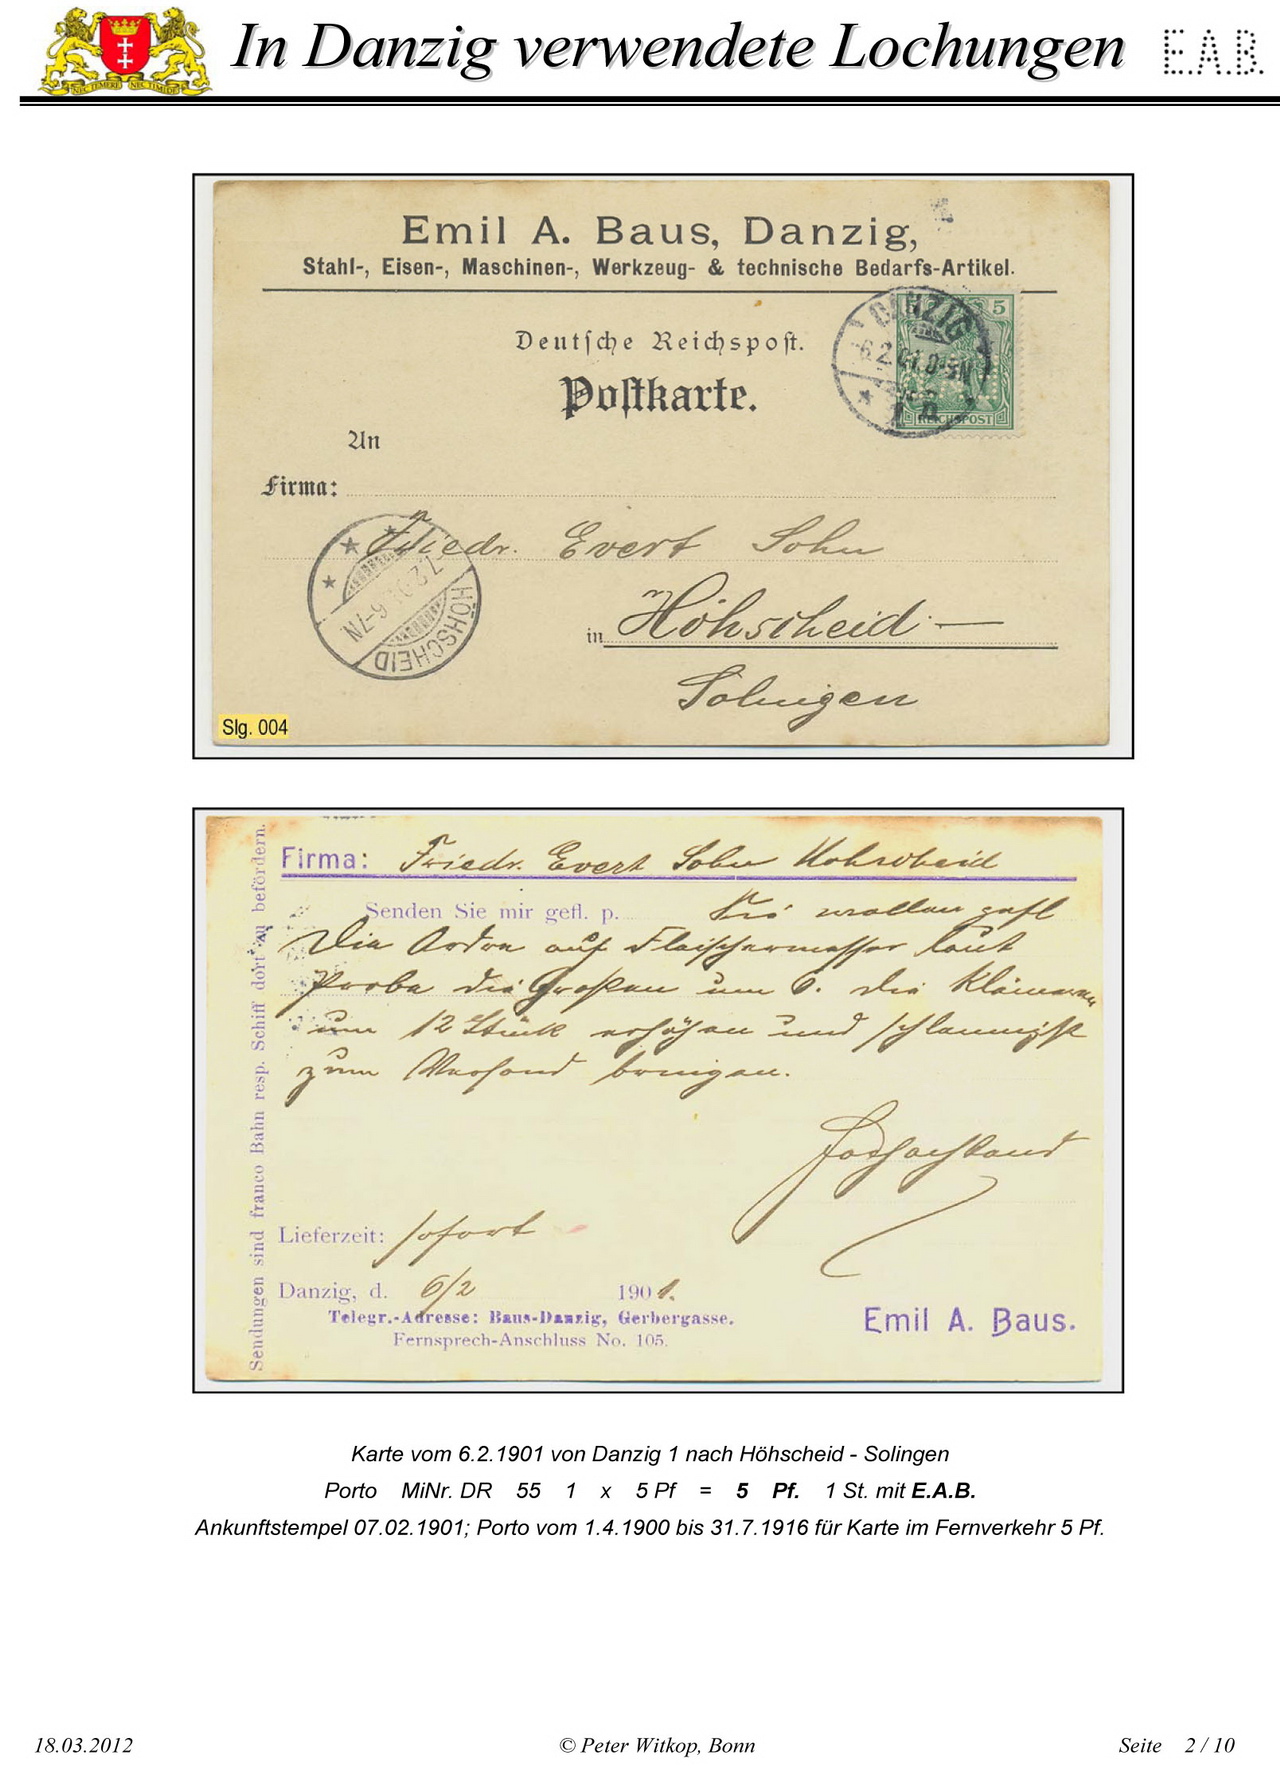 In Danzig verwendete Lochungen
E.A.B.
NEC TEMERE NEC TIMIDE
Emil A. Baus, Danzig,
Stahl-, Eisen-, Maschinen-, Werkzeug- & technische Bedarfs-Artikel.
Deutsche Reichspost.
Postkarte.
DANZIG
5
REICHSPOST
An
Firma:
Friedr. Evert Sohn
in Höhscheid —
Solingen
7.2.01. 6-7N
HÖHSCHEID
Slg. 004
Sendungen sind franco Bahn resp. Schiff dort zu befördern.
Firma: Friedr. Evert Sohn Hohscheid
Senden Sie mir gefl. p. Sie wollen gefl
Die Ordre auf Fleischermesser laut
Probe die Großen um 6. die Kleineren
um 12 Stück erhöhen und schleunigst
zum Versand bringen.
Hochachtend
Lieferzeit: sofort
Danzig, d. 6/2 1901.
Telegr.-Adresse: Baus-Danzig, Gerbergasse.
Fernsprech-Anschluss No. 105.
Emil A. Baus.
Karte vom 6.2.1901 von Danzig 1 nach Höhscheid - Solingen
Porto MiNr. DR 55 1 x 5 Pf = 5 Pf. 1 St. mit E.A.B.
Ankunftstempel 07.02.1901; Porto vom 1.4.1900 bis 31.7.1916 für Karte im Fernverkehr 5 Pf.
18.03.2012
© Peter Witkop, Bonn
Seite 2 / 10